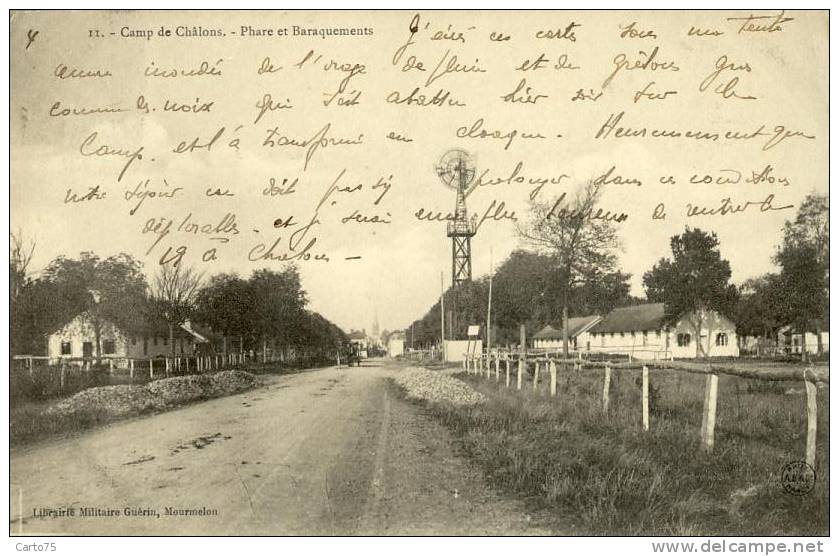 11. - Camp de Châlons. - Phare et Baraquements
J'écris ces cartes sous ma tente
inondés de l'orage de pluie et de grêlons gros
comme des noix qui s'est abattu hier soir sur le
Camp. et l'à transformé en cloaque. Heureusement que
notre séjour ne doit pas s'y prolonger dans ces conditions
déplorables. et je serai on ne peut plus heureux de rentrer le
19 à Chalons —
Librairie Militaire Guérin, Mourmelon
Carto75
www.delcampe.net